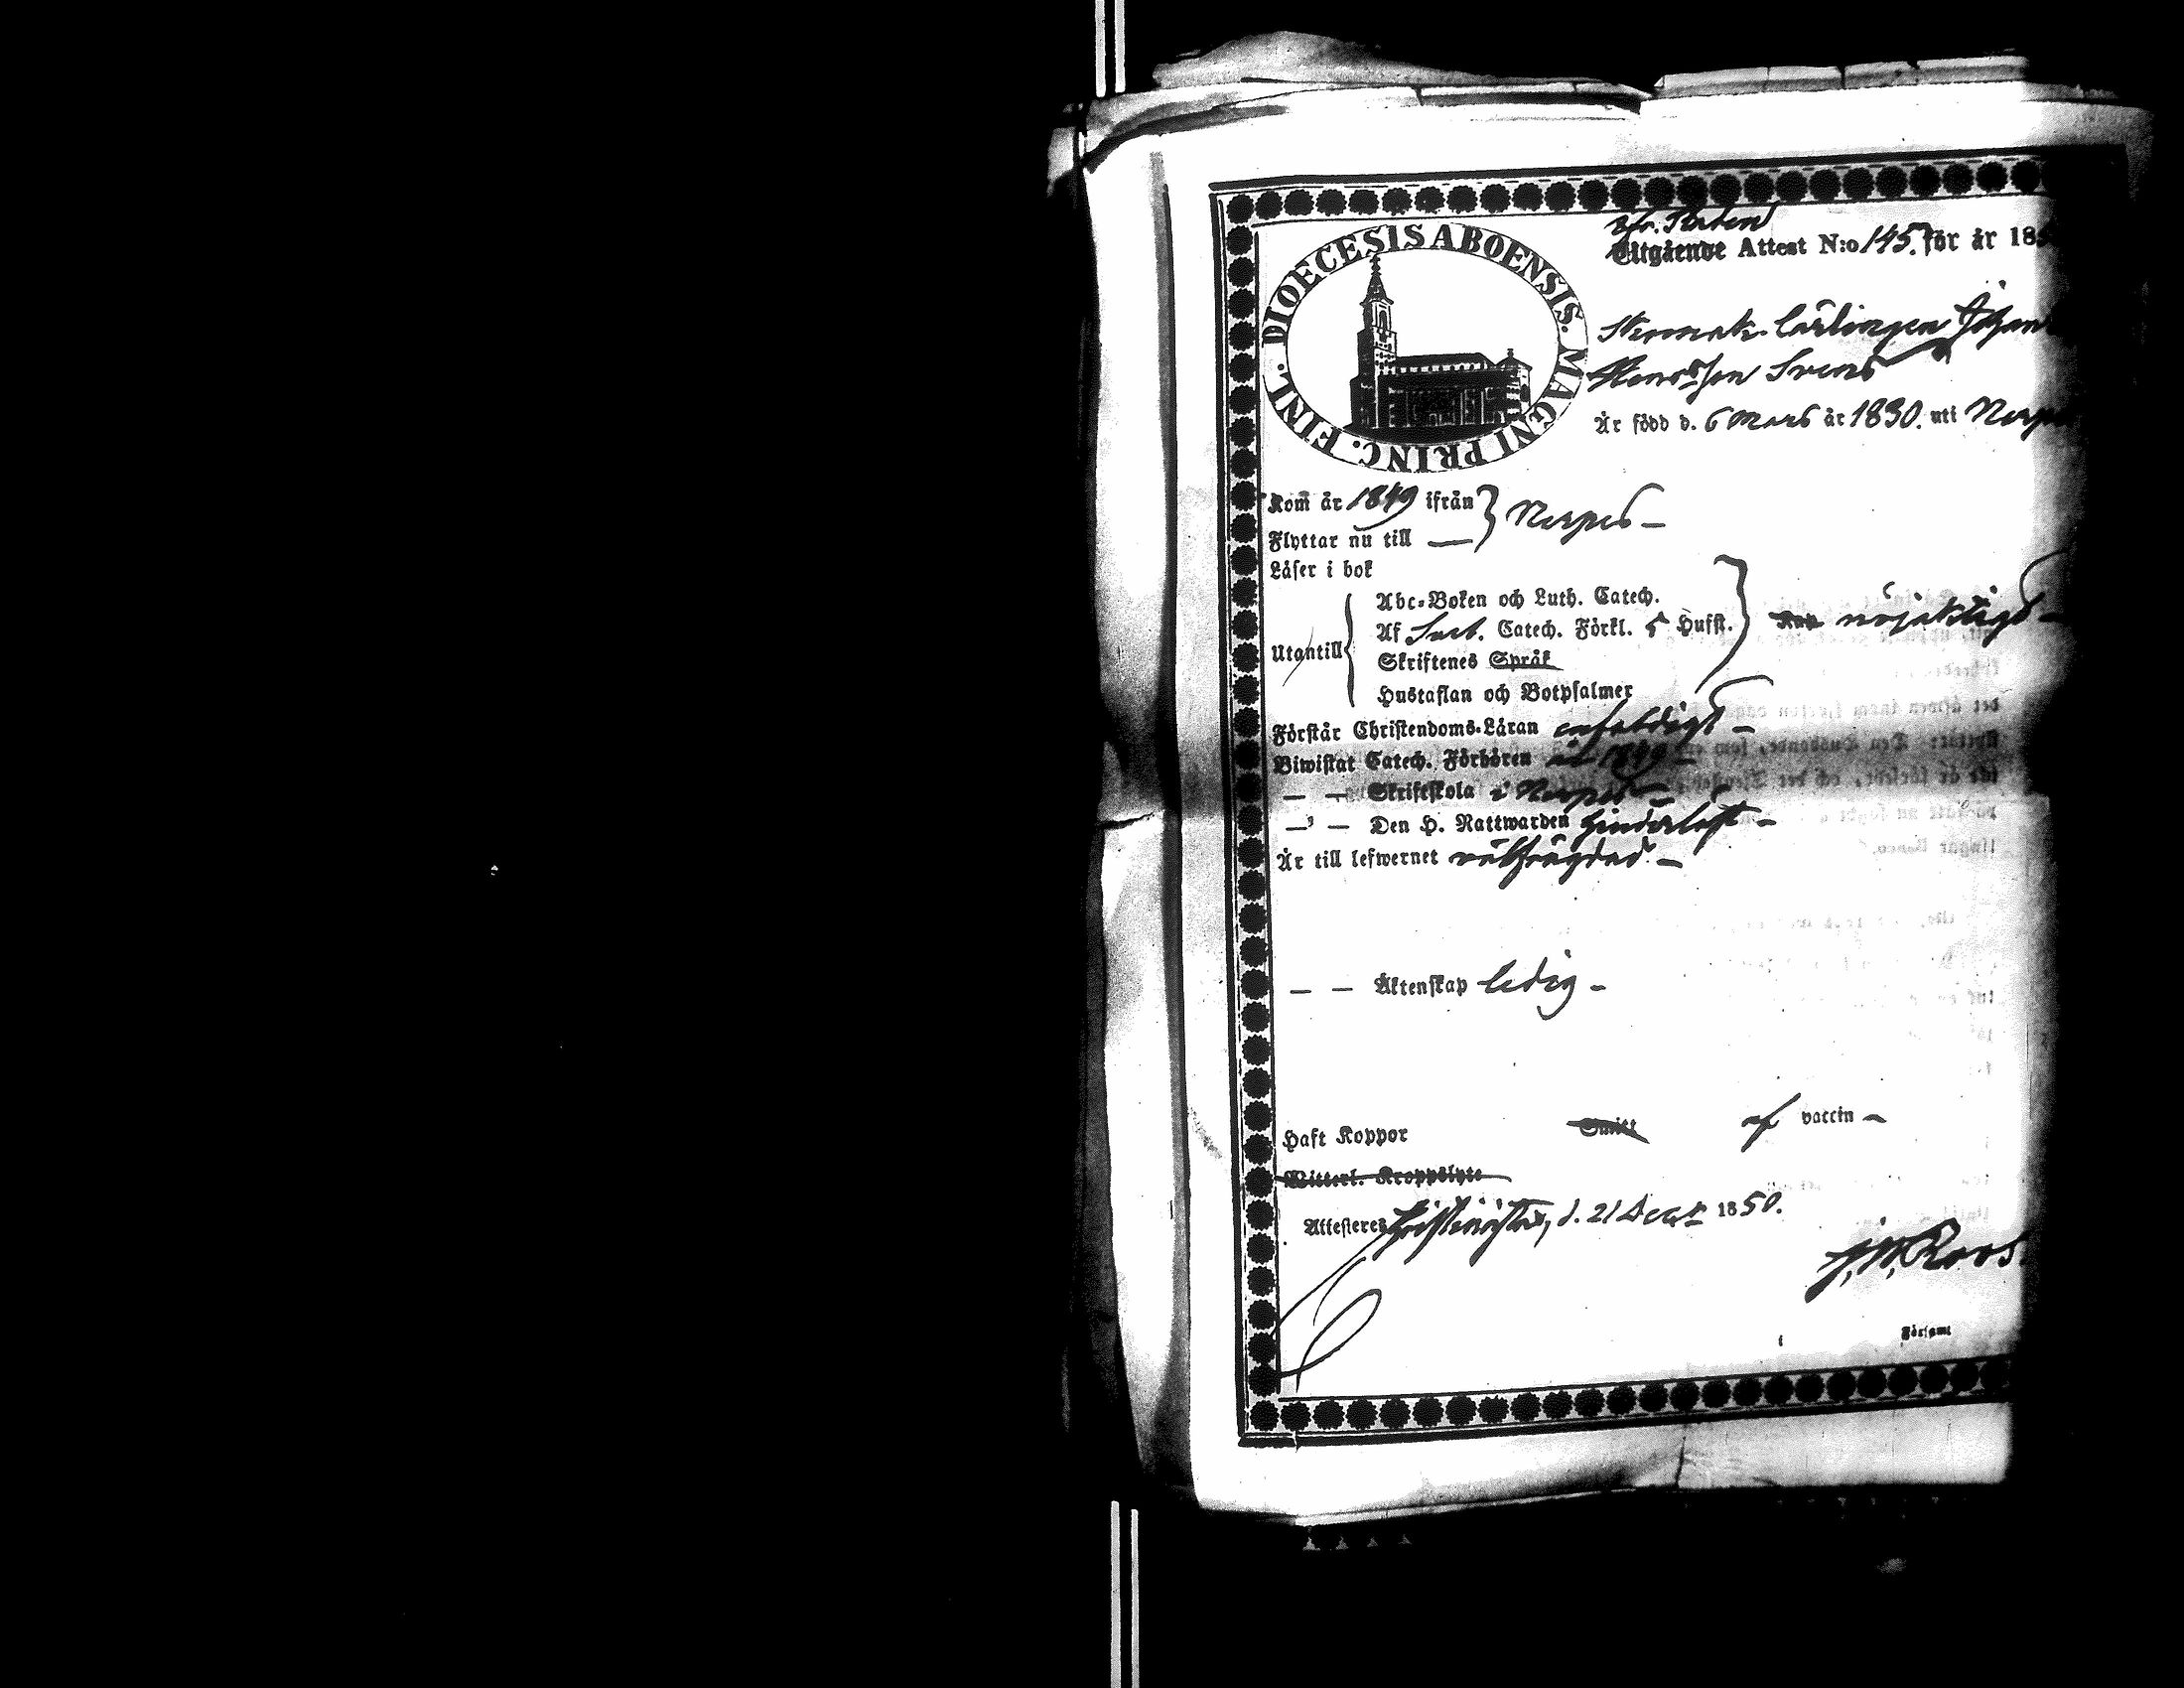 DIOECESIS ABOENSIS. MAGNI PRINC. FINL.
Utgående Attest N:o 145. för år 185
Skomak. Lärlingen Johan
Svens
Är född d. 6 Mars år 1830. uti Nerpes
Kom år 1849 ifrån } Nerpes –
Flyttar nu till —
Läser i bok
Utantill { Abc-Boken och Luth. Catech.
Af Sveb. Catech. Förkl. 5 Hufst. } nöjaktigt –
Skriftenes Språk
Hustaflan och Botpsalmer
Förstår Christendoms-Läran enfaldigt –
Biwistat Catech. Förhören år 1849 –
— — Skriftskola i Nerpes –
— — Den H. Nattwarden hinderlöst –
Är till lefwernet välfrägdad. –
— — Äktenskap ledig –
Haft Koppor Smitt af vaccin –
Witterl. Kroppslyte
Attesteres Christinestad, d. 21 Decbr 1850.
J. W. Roos.
i Församl